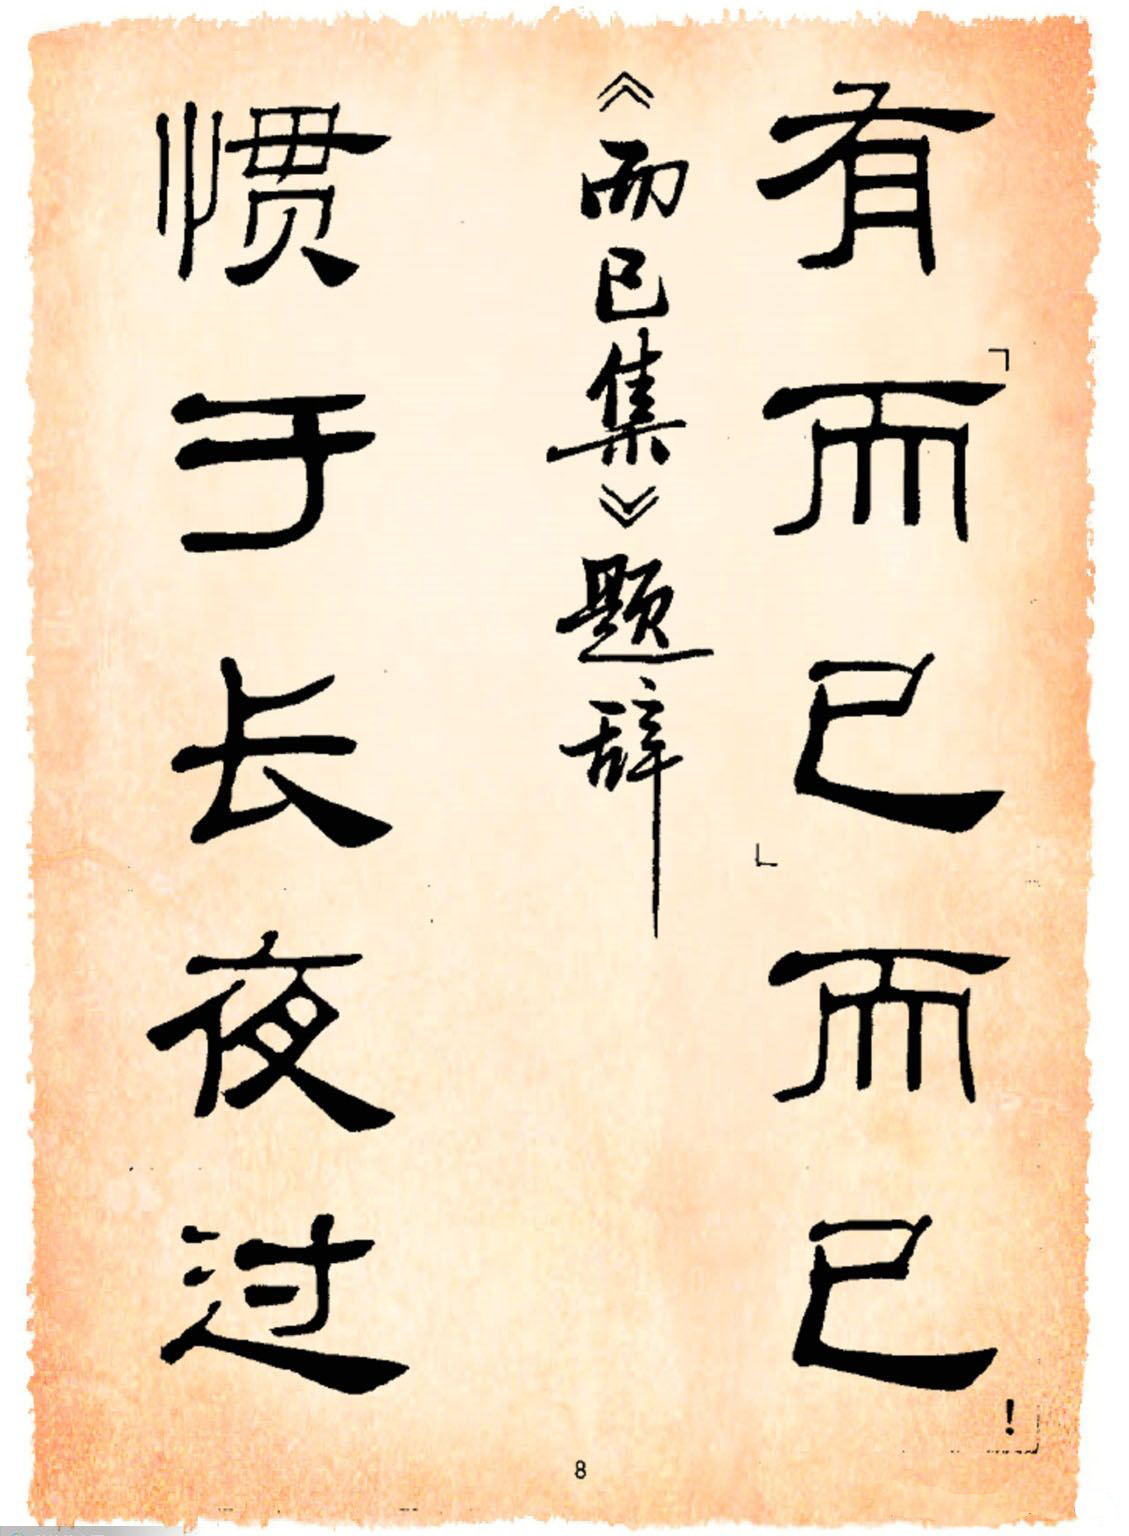 有「而已」而已!
《而已集》题辞
惯于长夜过
8